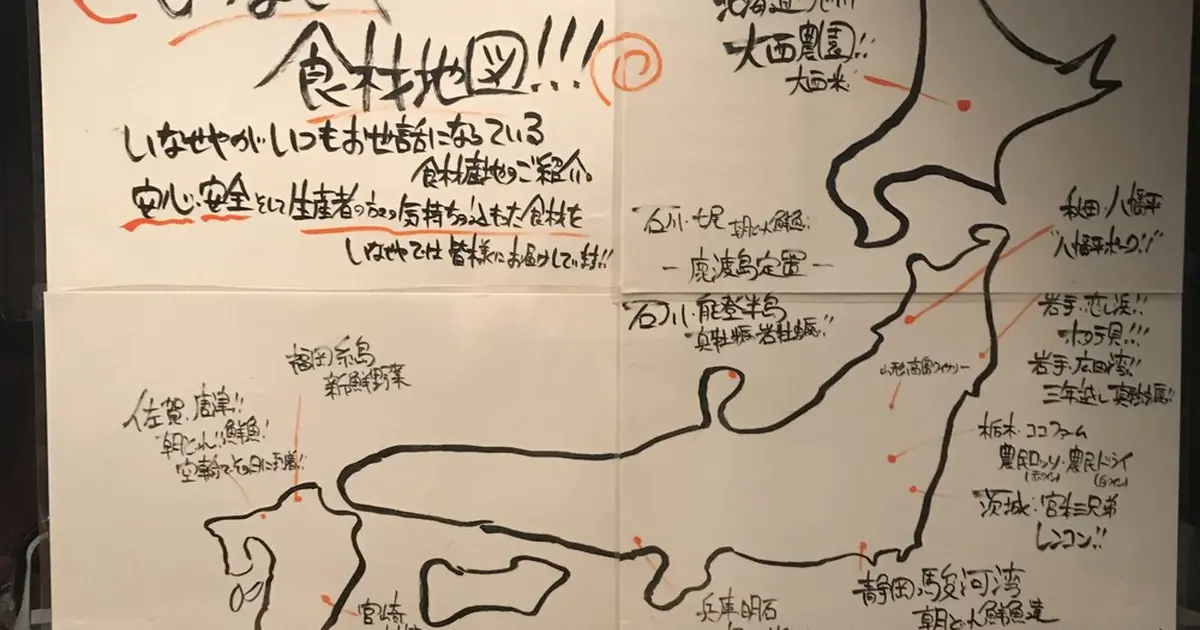 食材地図!!!
いなせやがいつもお世話になっている
食材産地のご紹介。
安心、安全そして生産者の方々の気持ちの込もった食材を
いなせやでは皆様にお届けしています!!
大西農園!!
大西米
石川・七尾 朝どれ鮮魚!
ー鹿渡島定置ー
石川・能登半島
真牡蠣・岩牡蠣!!
秋田・八幡平
"八幡平ポーク!!"
岩手・恋し浜!!
ホタテ貝!!!
岩手・広田湾!!
三年越し真牡蠣!!
山形・高畠ワイナリー
栃木・ココファーム
農民ロッソ・農民ドライ
(赤ワイン) (白ワイン)
茨城・宮本三兄弟
レンコン!!
福岡糸島
新鮮野菜
佐賀・唐津!!
朝どれ!!鮮魚!
空輸でその日に到着!!
宮崎
兵庫明石
静岡・駿河湾
朝どれ鮮魚達